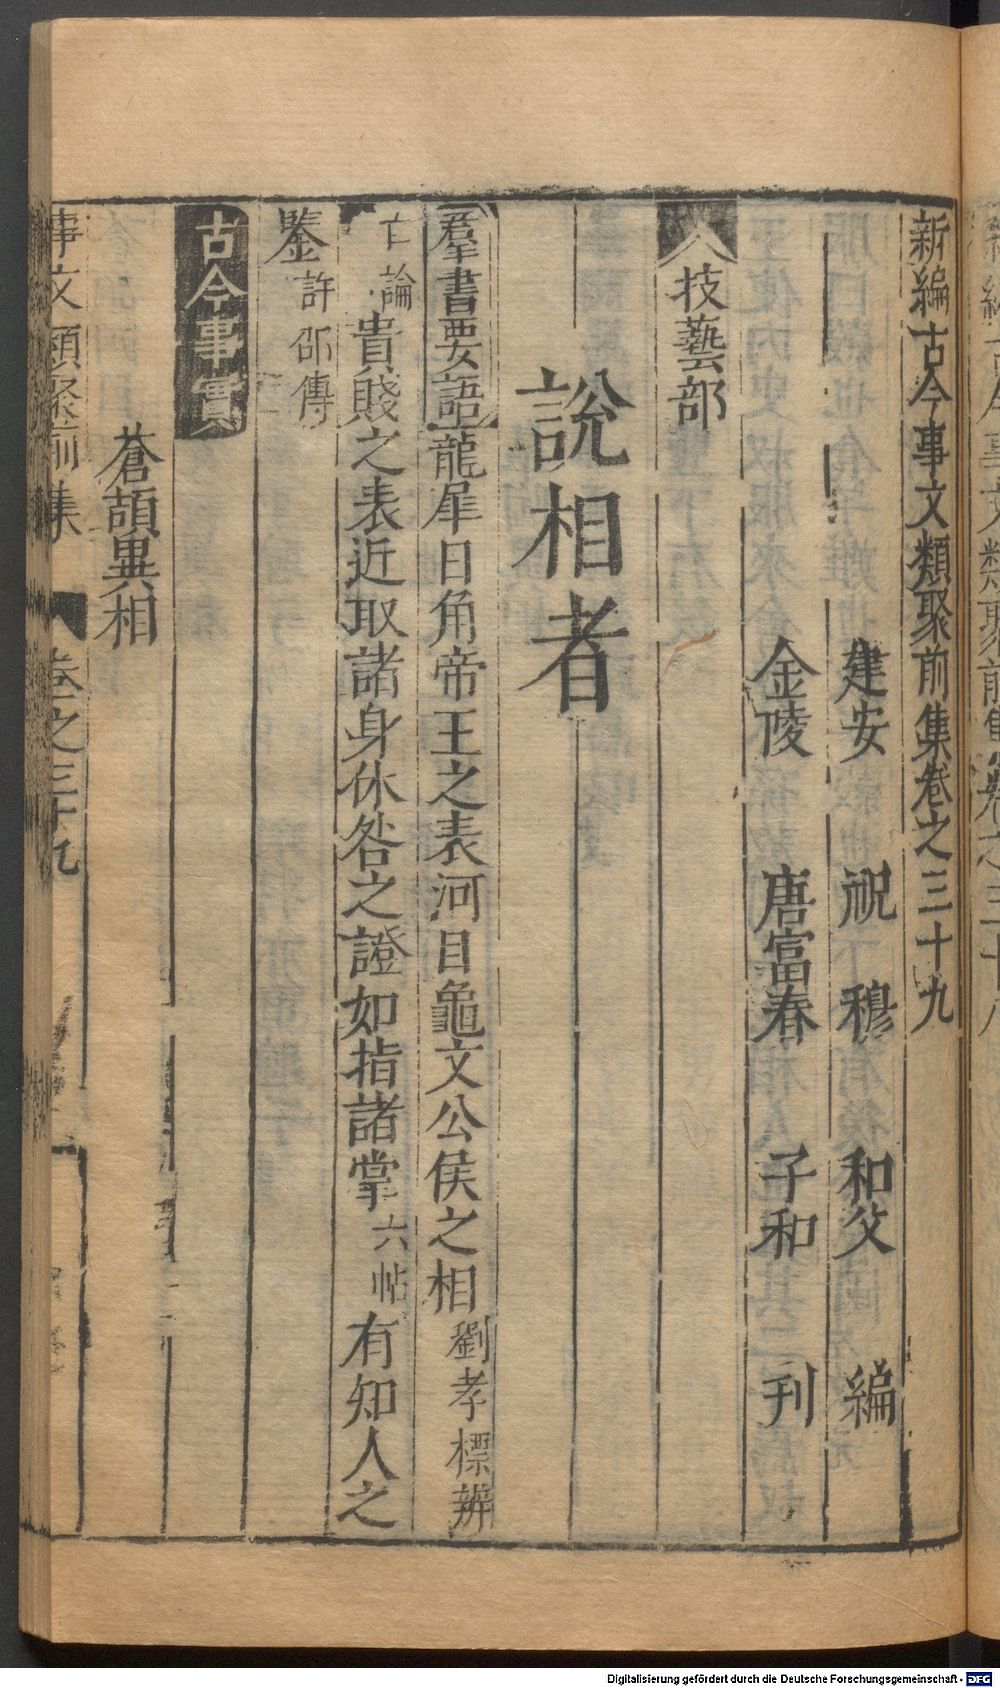 新編古今事文類聚前集卷之三十九
建安 祝 穆 和父 編
金陵 唐富春 子和 刊
技藝部
說相者
羣書要語龍犀日角帝王之表河目龜文公侯之相劉孝標辨
亡論貴賤之表近取諸身休咎之證如指諸掌六帖有知人之
鑒許邵傳
古今事實
蒼頡異相
事文類聚前集 卷之三十九
Digitalisierung gefördert durch die Deutsche Forschungsgemeinschaft - DFG